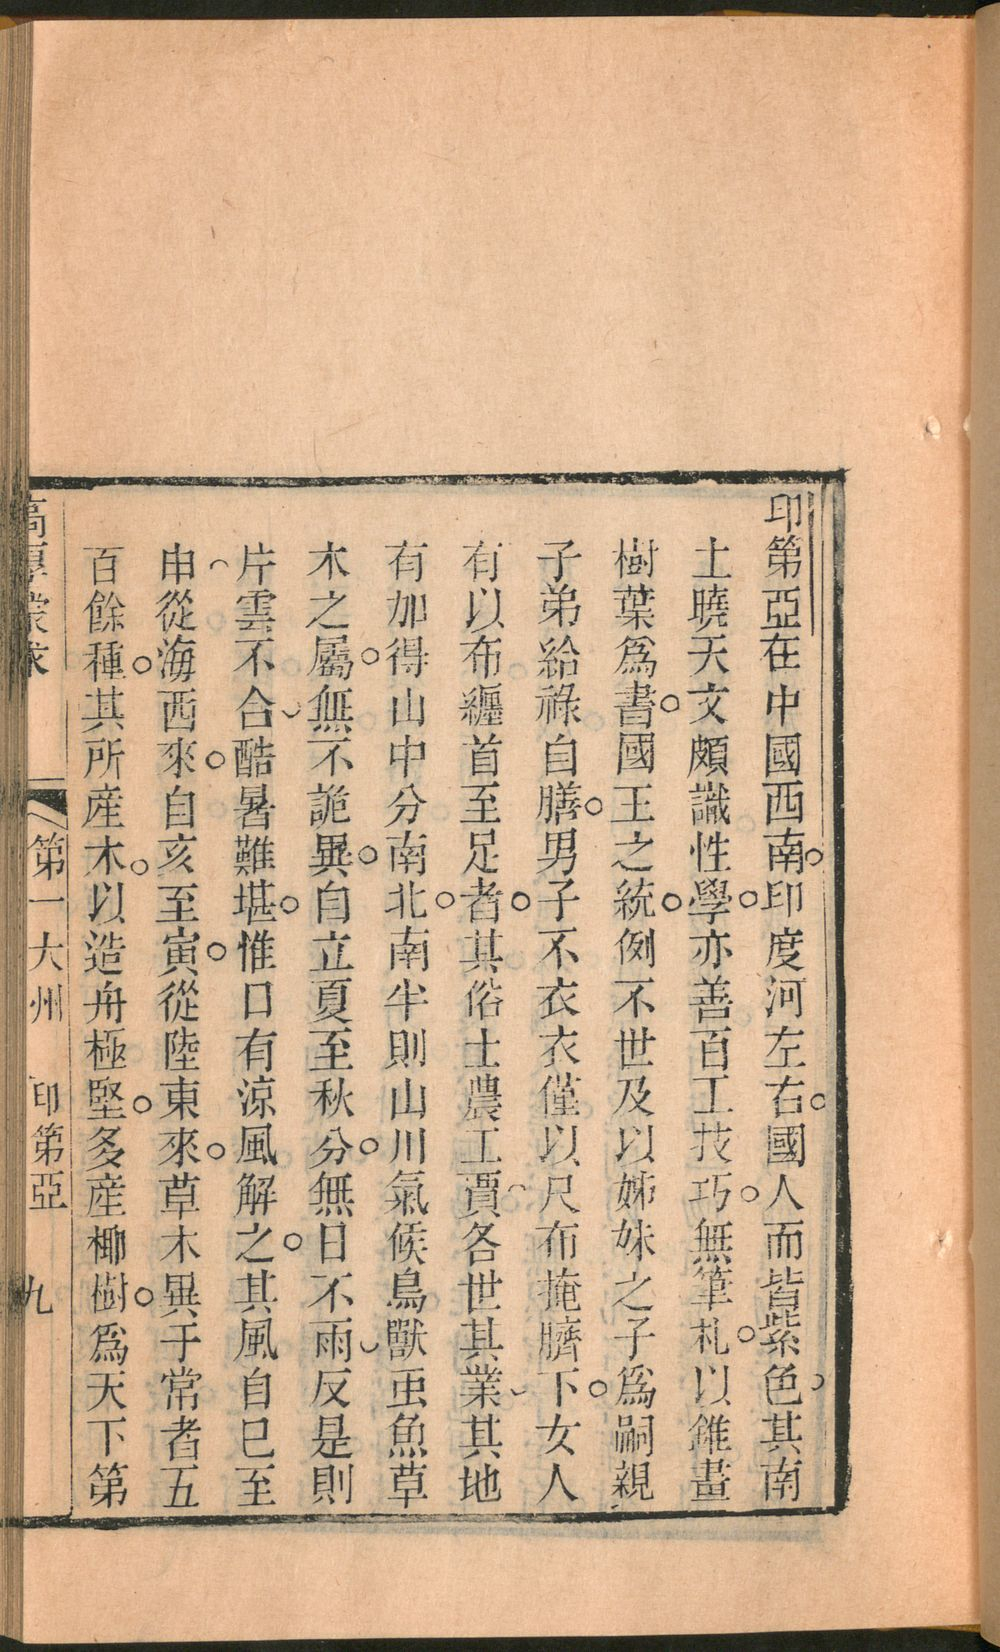 印第亞在中國西南印度河左右國人而皆紫色其南
土曉天文頗識性學亦善百工技巧無筆札以錐畫
樹葉爲書國王之統例不世及以姊妹之子爲嗣親
子弟給祿自膳男子不衣衣僅以尺布掩臍下女人
有以布纏首至足者其俗士農工賈各世其業其地
有加得山中分南北南半則山川氣候鳥獸虫魚草
木之屬無不詭異自立夏至秋分無日不雨反是則
片雲不合酷暑難堪惟日有涼風解之其風自巳至
申從海西來自亥至寅從陸東來草木異于常者五
百餘種其所產木以造舟極堅多產椰樹爲天下第
高厚蒙求 第一大州 印第亞 九